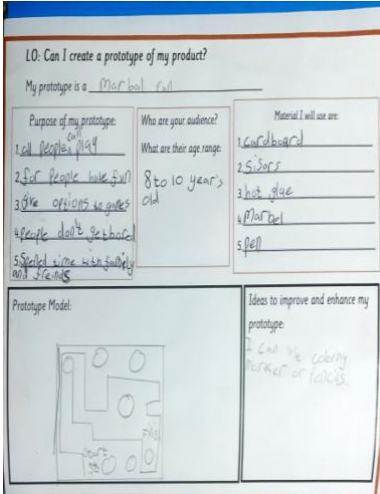 LO: Can I create a prototype of my product?
My prototype is a Marbal run
Purpose of my prototype:
1. all people can play
2. for people have fun
3. give options to games
4. people don't get bored
5. Spened time with family
and freinds
Who are your audience?
What are their age range:
8 to 10 year's
old
Material I will use are:
1. cardboard
2. Sisors
3. hot glue
4. Marbel
5. pen
Prototype Model:
Start
Finis
Ideas to improve and enhance my
prototype:
I can use coloring
marker or